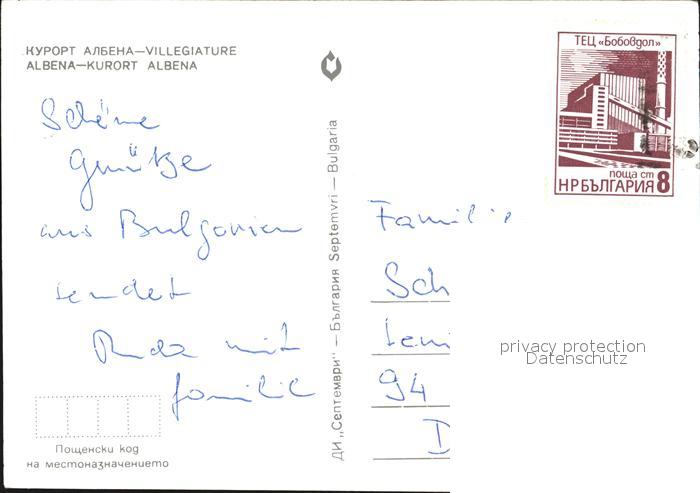 КУРОРТ АЛБЕНА—VILLEGIATURE
ALBENA—KURORT ALBENA
ТЕЦ «Бобовдол»
поща ст 8
НРБЪЛГАРИЯ
Schöne
Grüße
aus Bulgarien
sendet
mit
Familie
ДИ „Септември" — България Septemvri — Bulgaria
Familie
Sch
Leni
94
D
privacy protection
Datenschutz
Пощенски код
на местоназначението